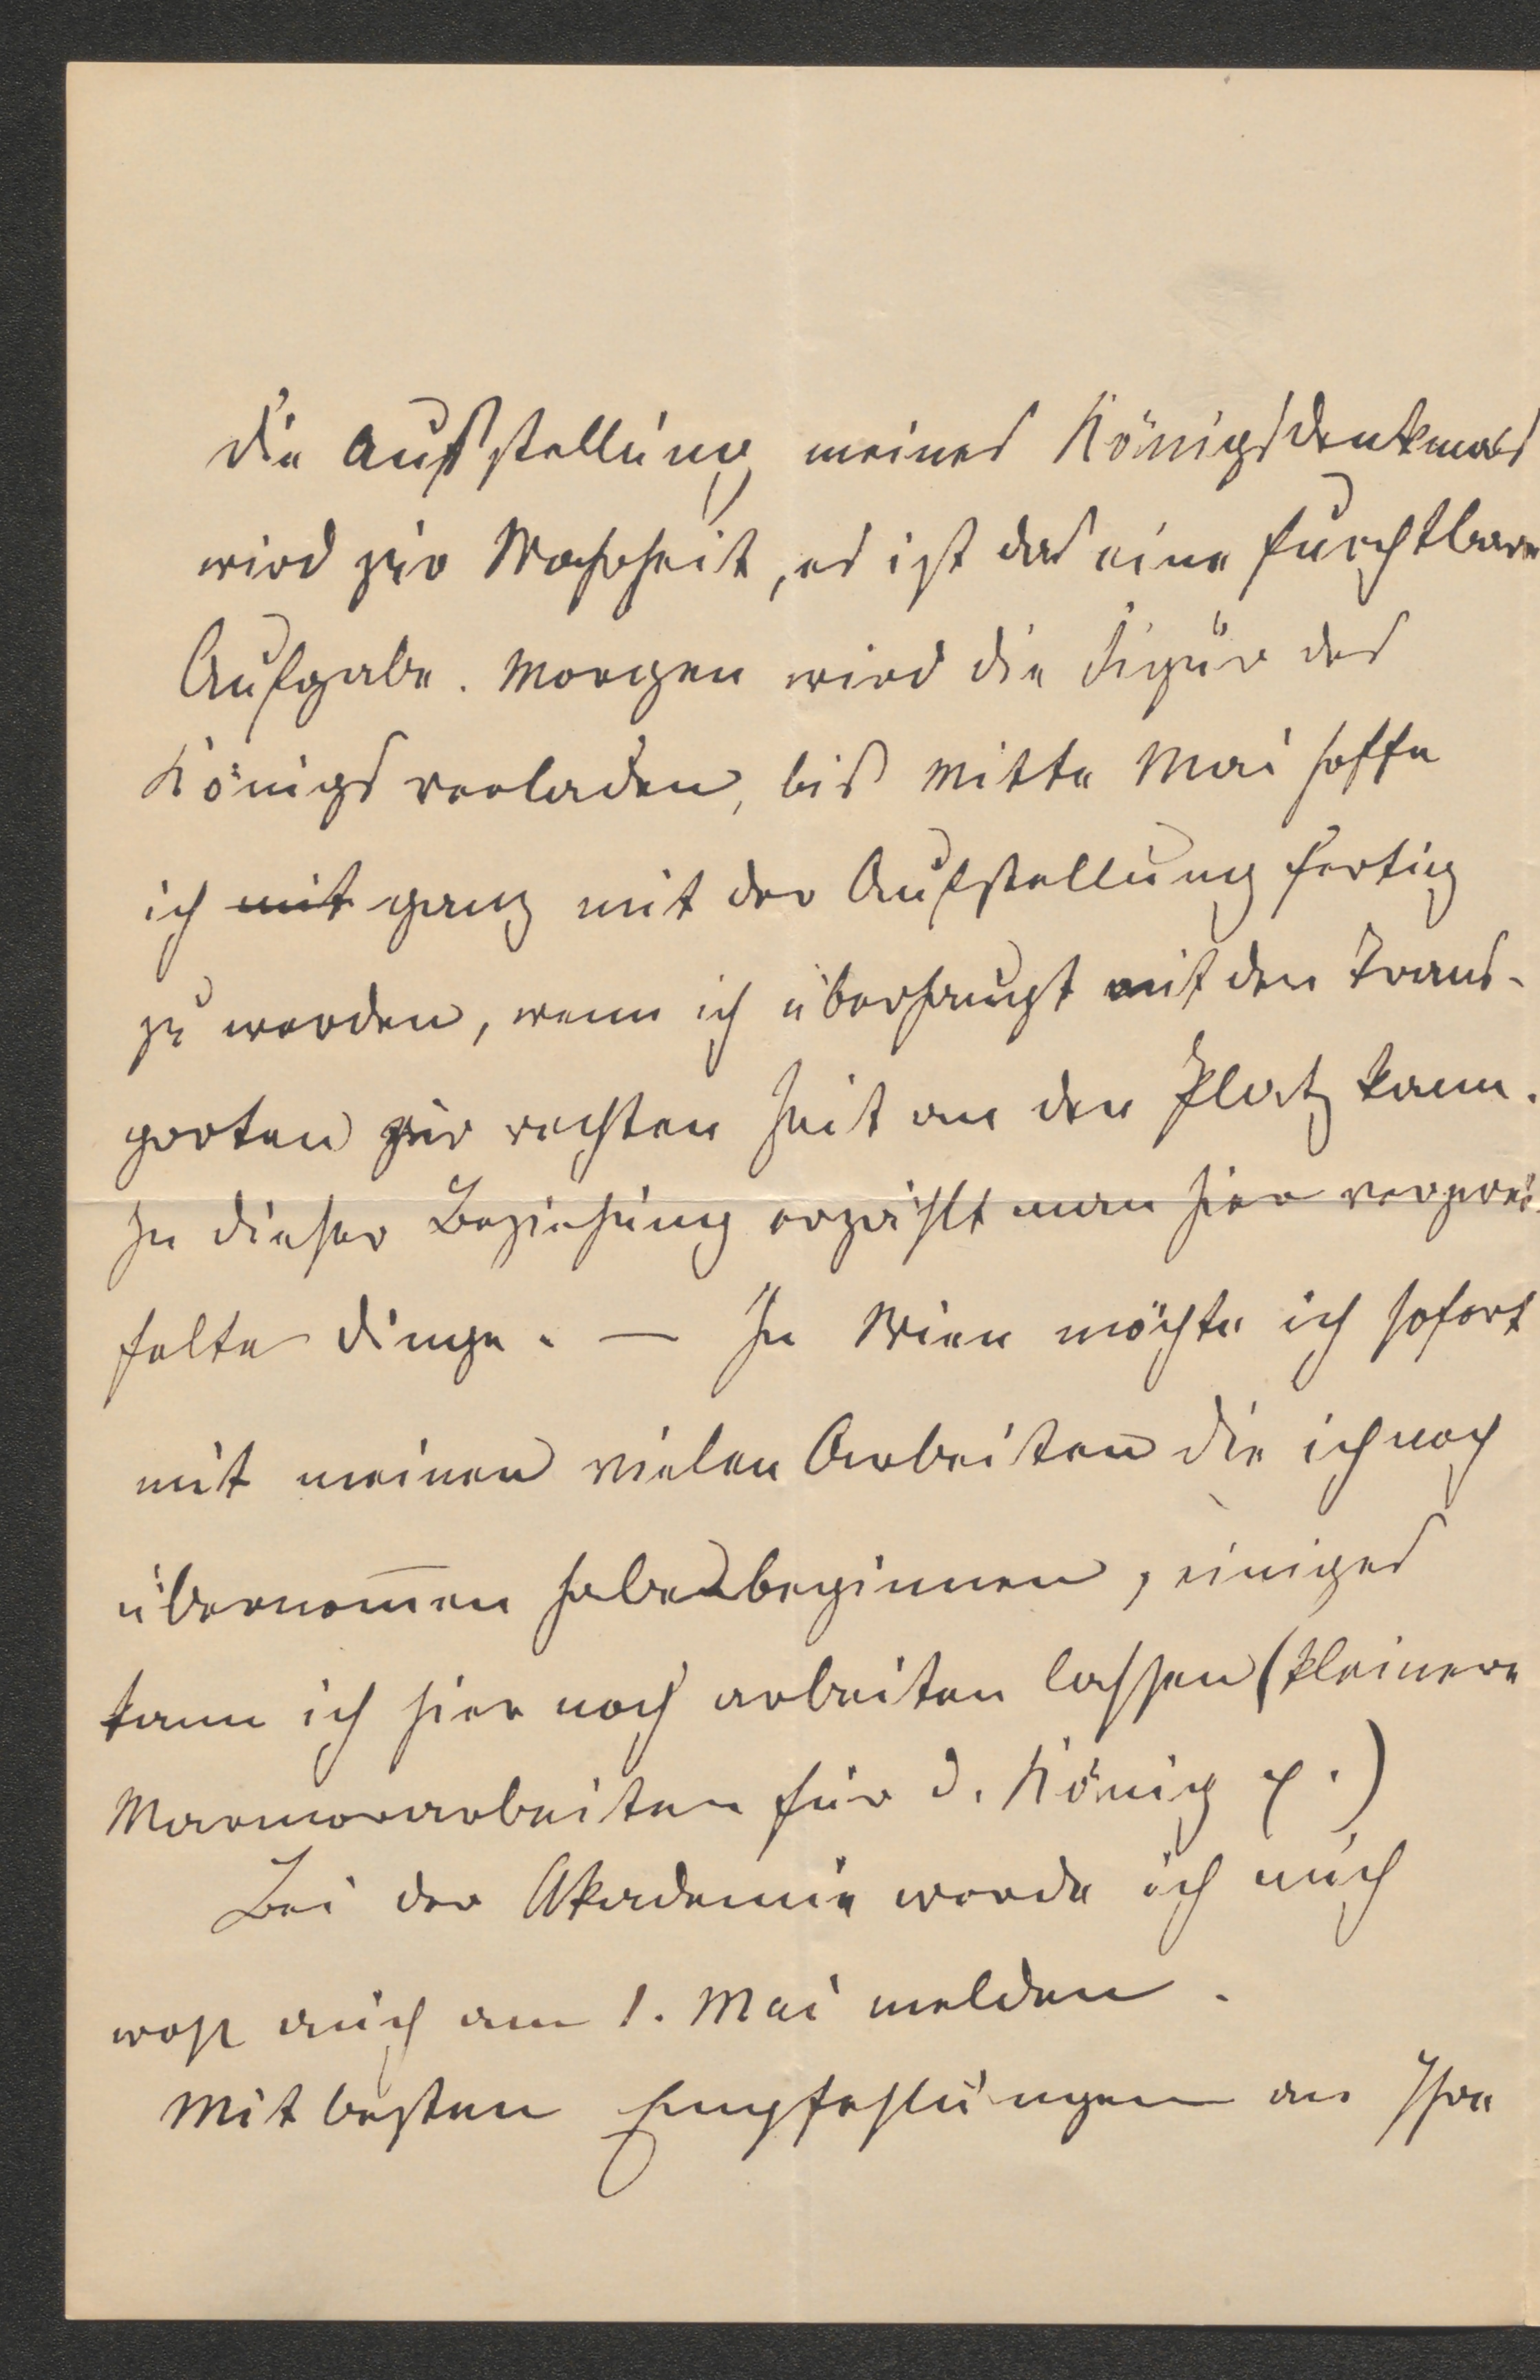 Die Aufstellung meines Königsdenkmals
wird zur Wahrheit, es ist das eine furchtbare
Aufgabe. Morgen wird die Figur des
Königs verladen, bis Mitte Mai hoffe
ich mit ganz mit der Aufstellung fertig
zu werden, wenn ich überhaupt mit den Trans-
porten zur rechten Zeit an den Platz kann.
In dieser Beziehung erzählt man hier verzwei-
felte Dinge. — In Wien möchte ich sofort
mit meinen vielen Arbeiten die ich noch
übernom̄en habe beginnen, einiges
kann ich hier noch arbeiten lassen (kleinere
Marmorarbeiten für d. König p.)
Bei der Akademie werde ich mich
wohl auch am 1. Mai melden.
Mit besten Empfehlungen an Ihre